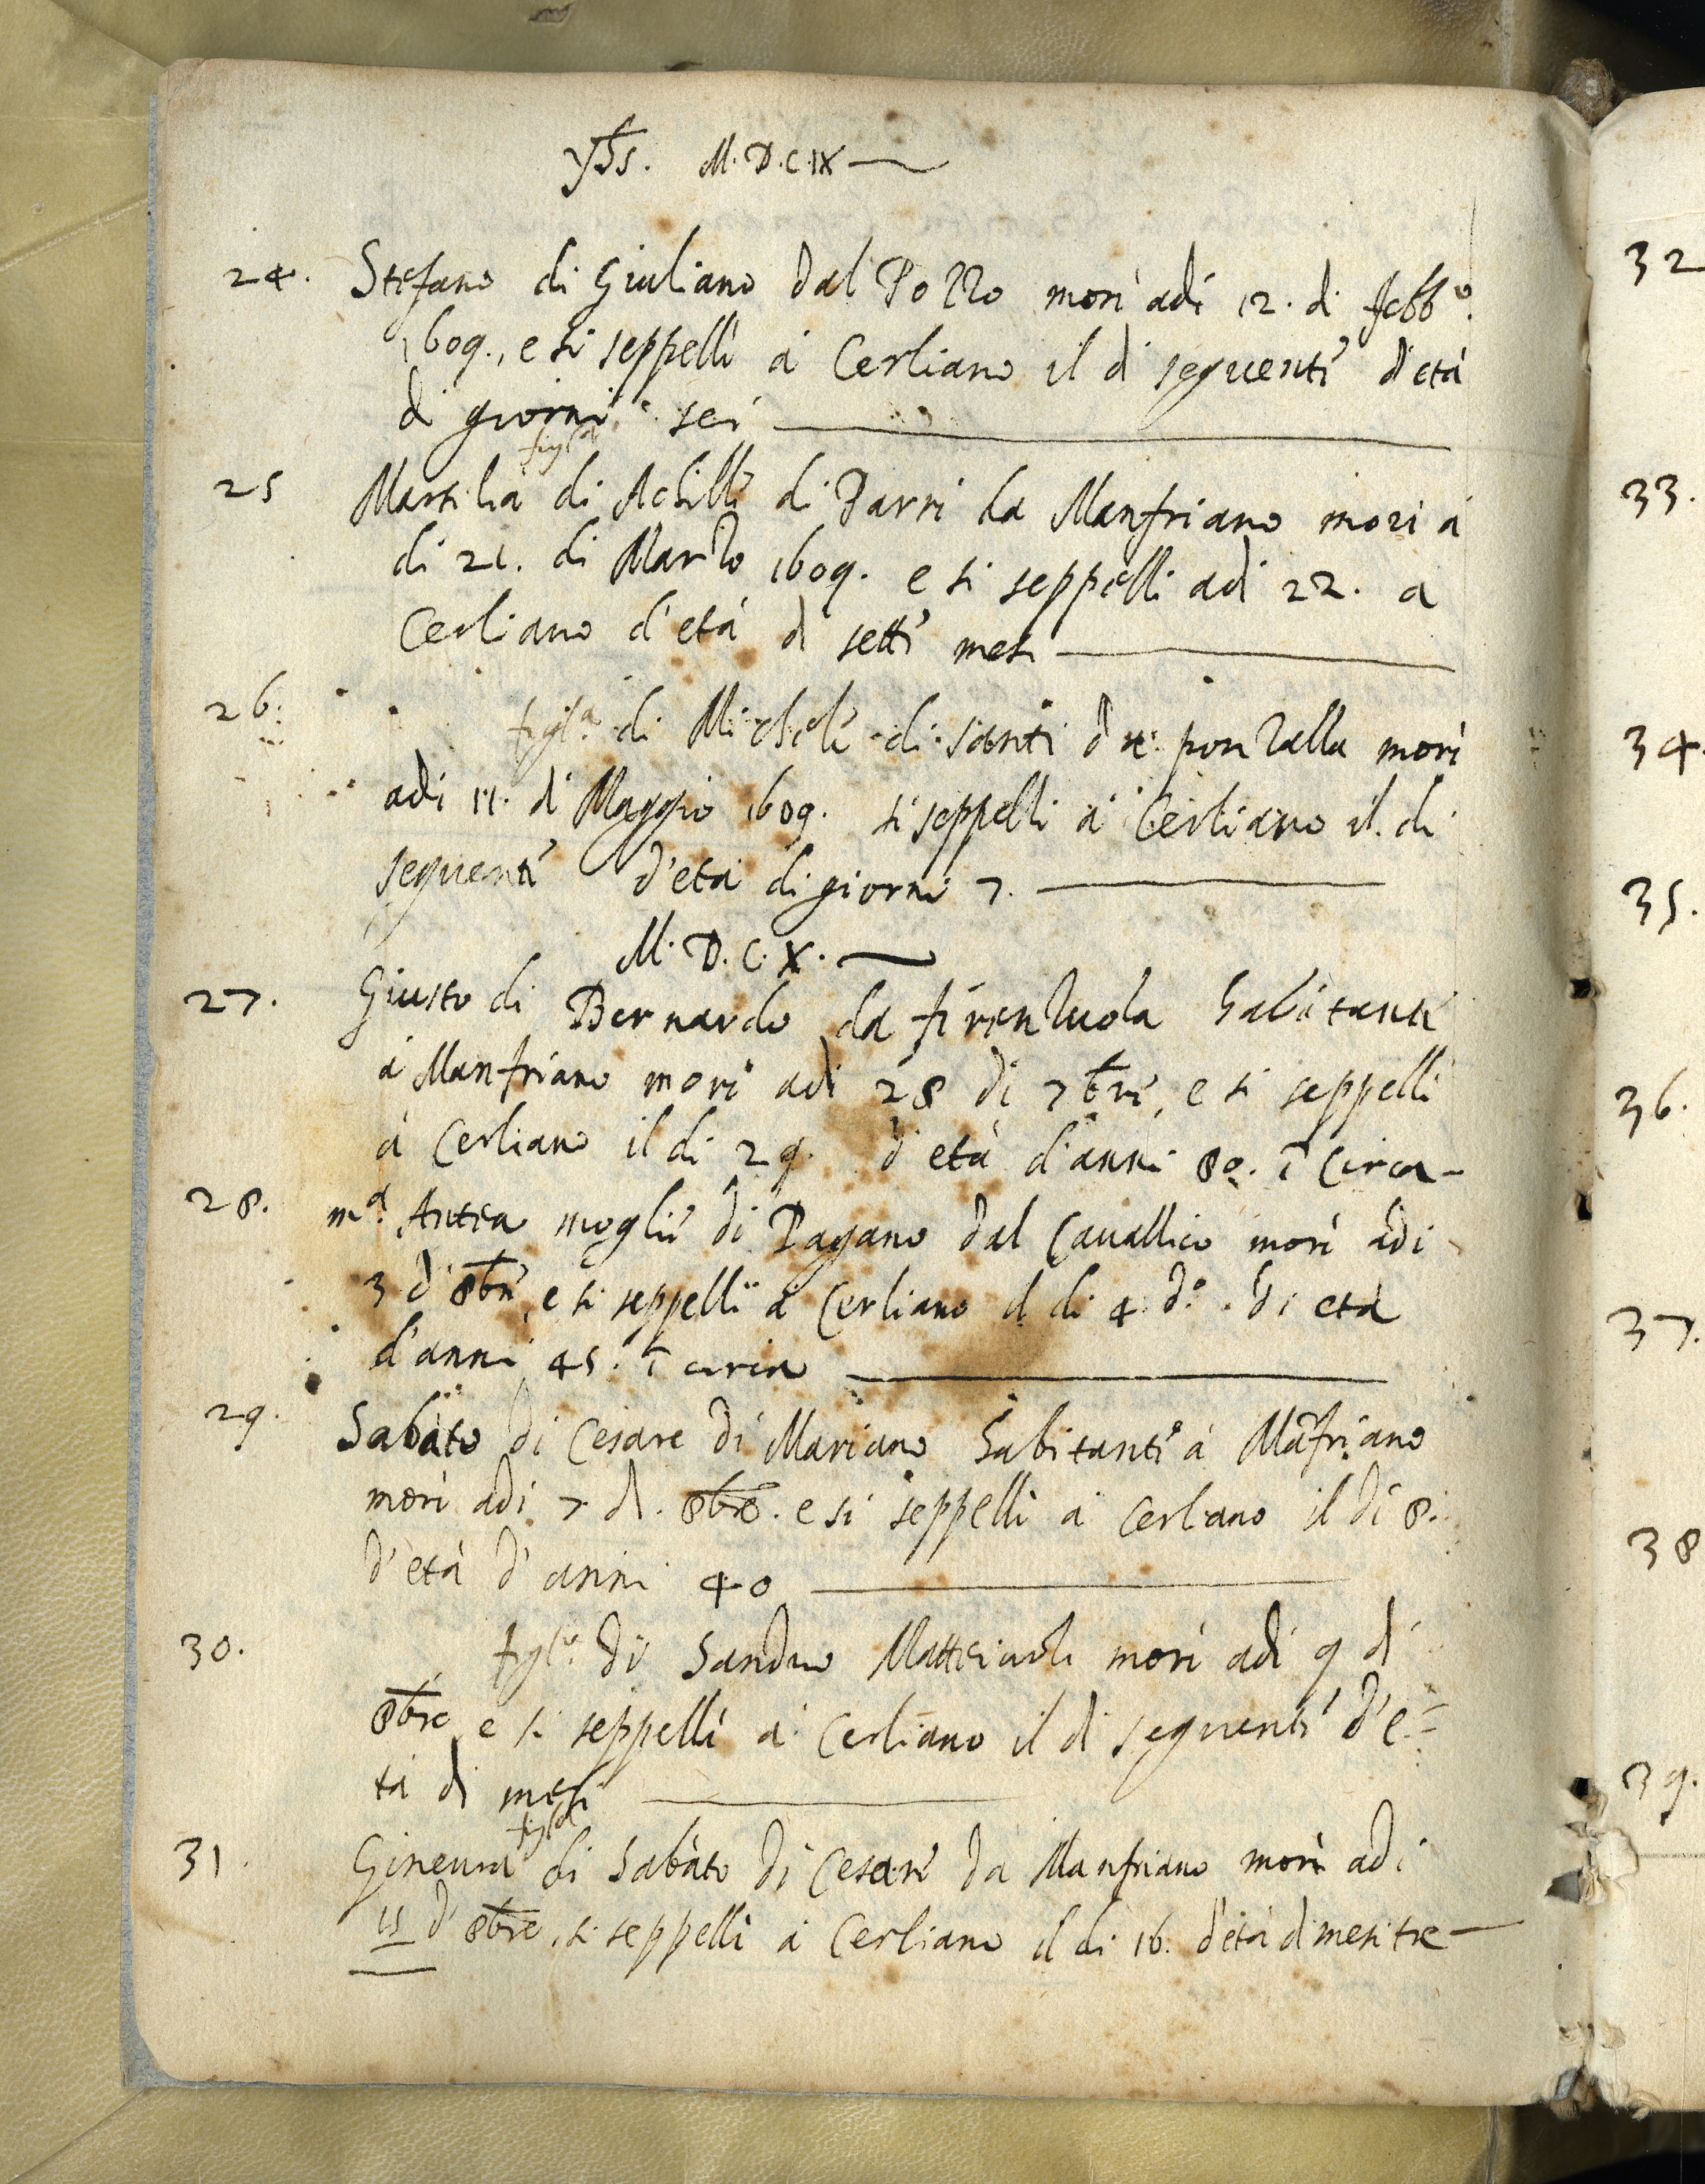 yhs. M.D.C.IX
24. Stefano di Giuliano dal Pozzo morì adi 12. di febb.o
1609., e si seppellì à Cerliano il dì seguente d'età
di giorni sei
figl.a
25 Marsilia di Achille di Parri da Manfriano morì a
di 21. di Marzo 1609. e si seppelli adi 22. a
Cerliano d'età di sette mesi
26. figl.a di Michele di Santi da ponzalla morì
adi 11. di Maggio 1609. si seppelli à Cerliano il di
seguente d'età di giorni 7.
M.D.C.X.
27. Giusto di Bernardo da firenzuola habitante
à Manfriano morì adi 28 di 7bre, e si seppelli
à Cerliano il di 29. d'età d'anni 80. ī circa
28. m.a Antea moglie di Pagano dal Cavallico morì adi
3 d'8bre, e si seppellì à Cerliano il di 4 d.o. di età
d'anni 45. ī circa
29. Sabàto di Cesare di Mariano habitante à Māfriano
morì adi 7 di. 8bre. e si seppelli à Cerliano il di 8.
d'età d'anni 40
30. figl.o di Sandro morì adi 9 di
8bre e si seppellì à Cerliano il di seguente d'e=
tà di mesi
figl.a
31. Ginevra di Sabàto di Cesare da Manfriano morì adi
15 d'8bre, si seppellì à Cerliano il di 16. d'età di mesi tre
32
33.
34.
35.
36.
37.
38
39.